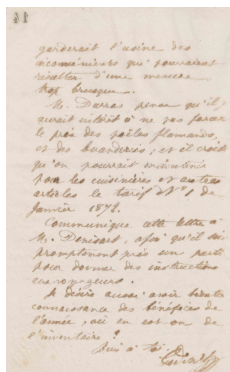 garderait l'usine des
inconvénients qui pourraient
résulter d'une mesure
trop brusque.
M. Dursos pense qu'il
aurait intérêt à ne pas forcer
le prix des poêles flamands,
et des buanderies; et il croit
qu'on pourrait maintenir
pour les cuisinières et autres
articles le tarif N° 1 de
Janvier 1872.
Communique cette lettre à
M. , afin qu'il
promptement
pour donner des instructions
aux voyageurs.
Je désire aussi avoir bientôt
connaissance des bénéfices de
l'année, où en est on de
l'inventaire ?
Suis à toi